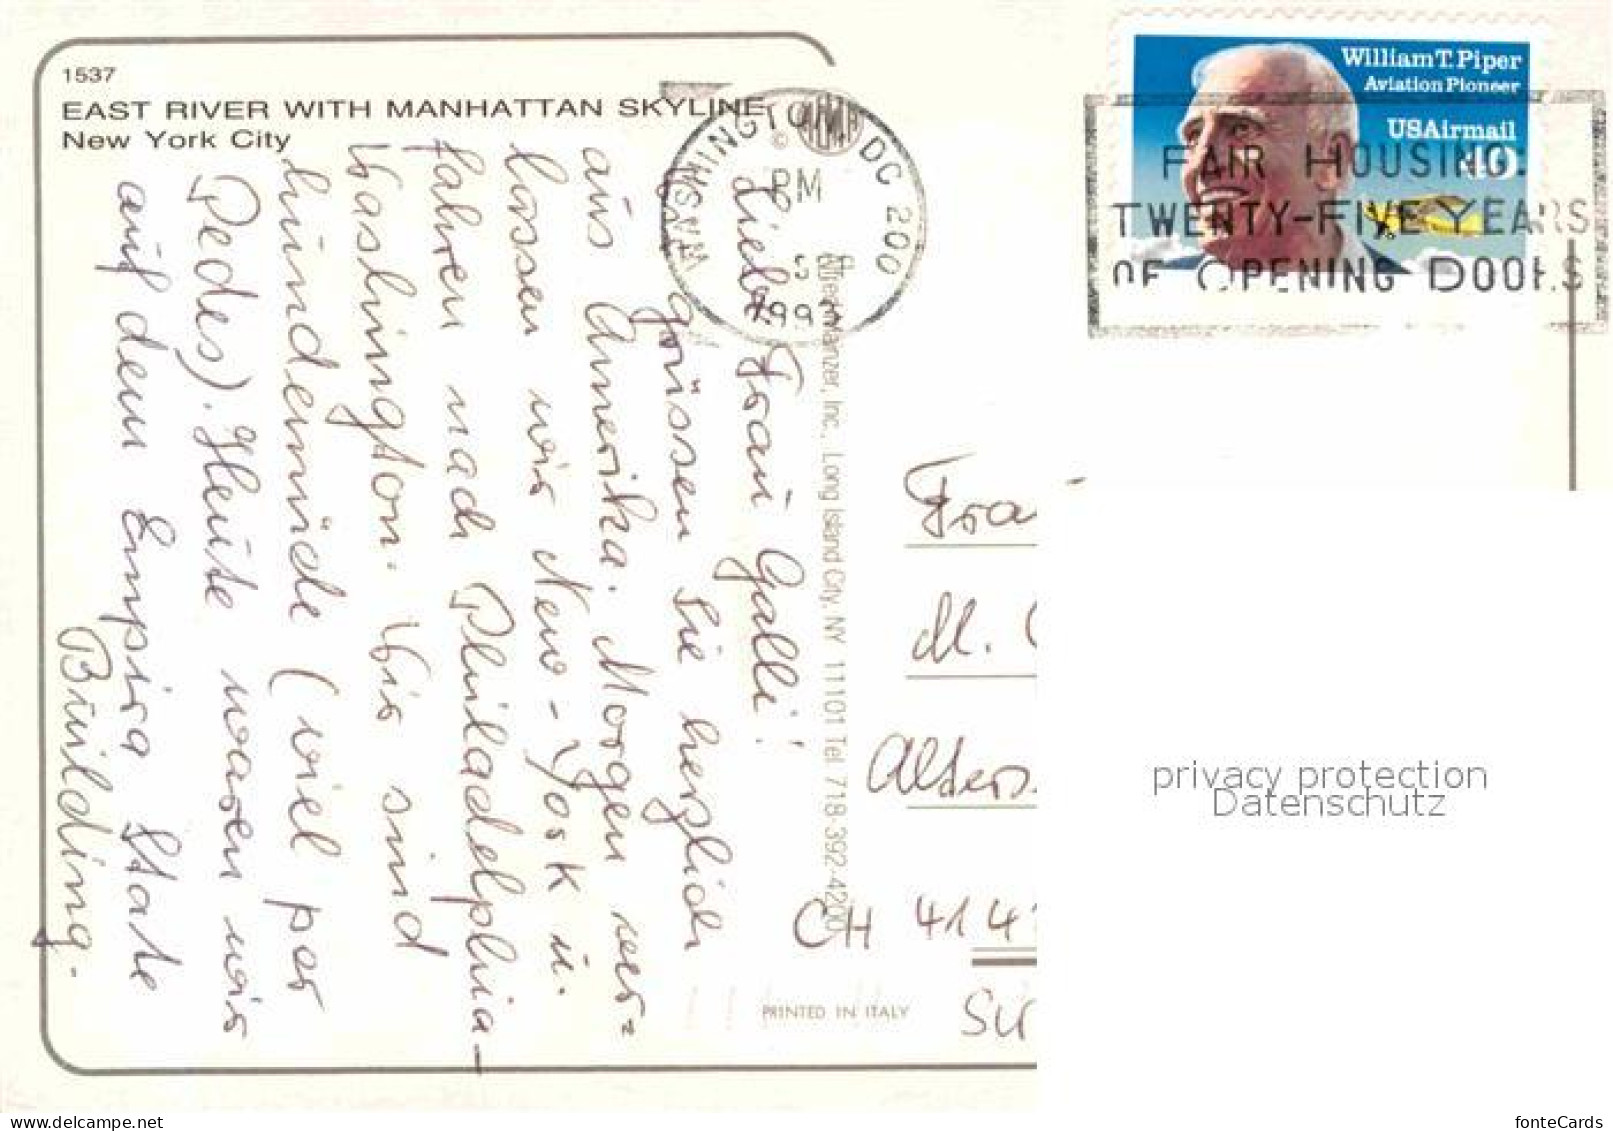 1537
EAST RIVER WITH MANHATTAN SKYLINE
New York City
Liebe Frau Galli!
grüssen Sie herzlich
aus Amerika. Morgen ver=
lassen wir New-York u.
fahren nach Philadelphia-
Washington. Wir sind
hundemüde (viel per
Pedes). Heute waren wir
auf dem Empire State
Building.
Alfred Mainzer, Inc., Long Island City, NY 11101 Tel 718-392-4200
PRINTED IN ITALY
WASHINGTON, DC 200
PM
5
199
William T. Piper
Aviation Pioneer
USAirmail
40
FAIR HOUSING:
TWENTY-FIVE YEARS
OF OPENING DOORS
Fra
M.
Alters
CH 414
privacy protection
Datenschutz
fonteCards